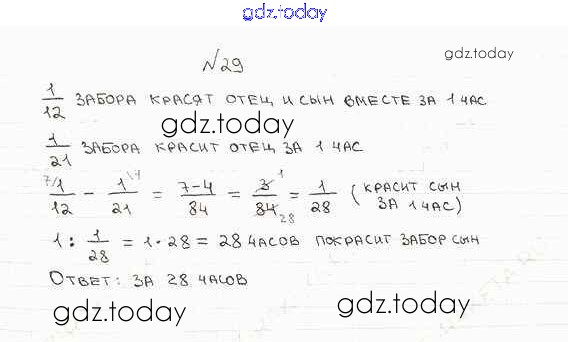 gdz.today
№29
gdz.today
1/12 ЗАБОРА КРАСЯТ ОТЕЦ И СЫН ВМЕСТЕ ЗА 1 ЧАС
gdz.today
1/21 ЗАБОРА КРАСИТ ОТЕЦ ЗА 1 ЧАС
7/ 1/12 - 1/21 \4 = 7-4/84 = 3/84 1 28 = 1/28 (КРАСИТ СЫН ЗА 1 ЧАС)
1 : 1/28 = 1·28 = 28 ЧАСОВ ПОКРАСИТ ЗАБОР СЫН
ОТВЕТ: ЗА 28 ЧАСОВ
gdz.today
gdz.today